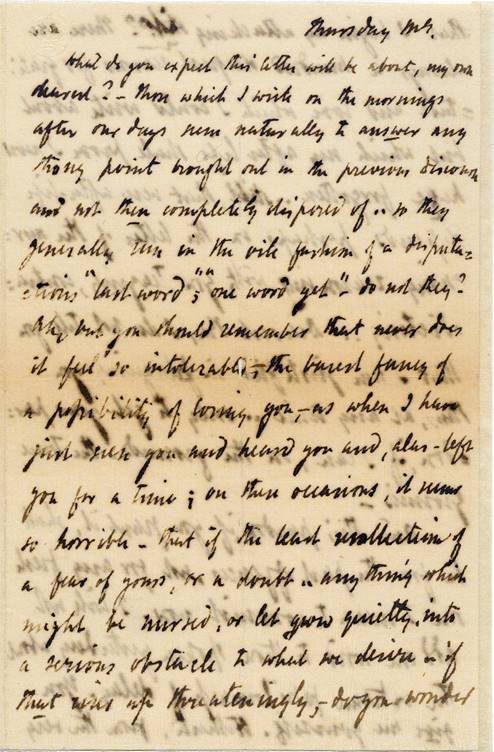 Thursday Mg.
What do you expect this letter will be about, my own
dearest? – Those which I write on the mornings
after our days seem naturally to answer any
strong point brought out in the previous discourse
and not then completely disposed of .. so they
generally run in the vile fashion of a disputa=
=tious "last word"; "one word yet" – do not they?
Ah, but you should remember that never does
it feel so intolerable, – the barest fancy of
a possibility of losing you, – as when I have
just seen you and heard you and, alas – left
you for a time; on these occasions, it seems
so horrible – that if the least recollection of
a fear of yours, or a doubt .. anything which
might be nursed, or let grow quietly into
a serious obstacle to what we desire .. if
that rises up threateningly, – do you wonder